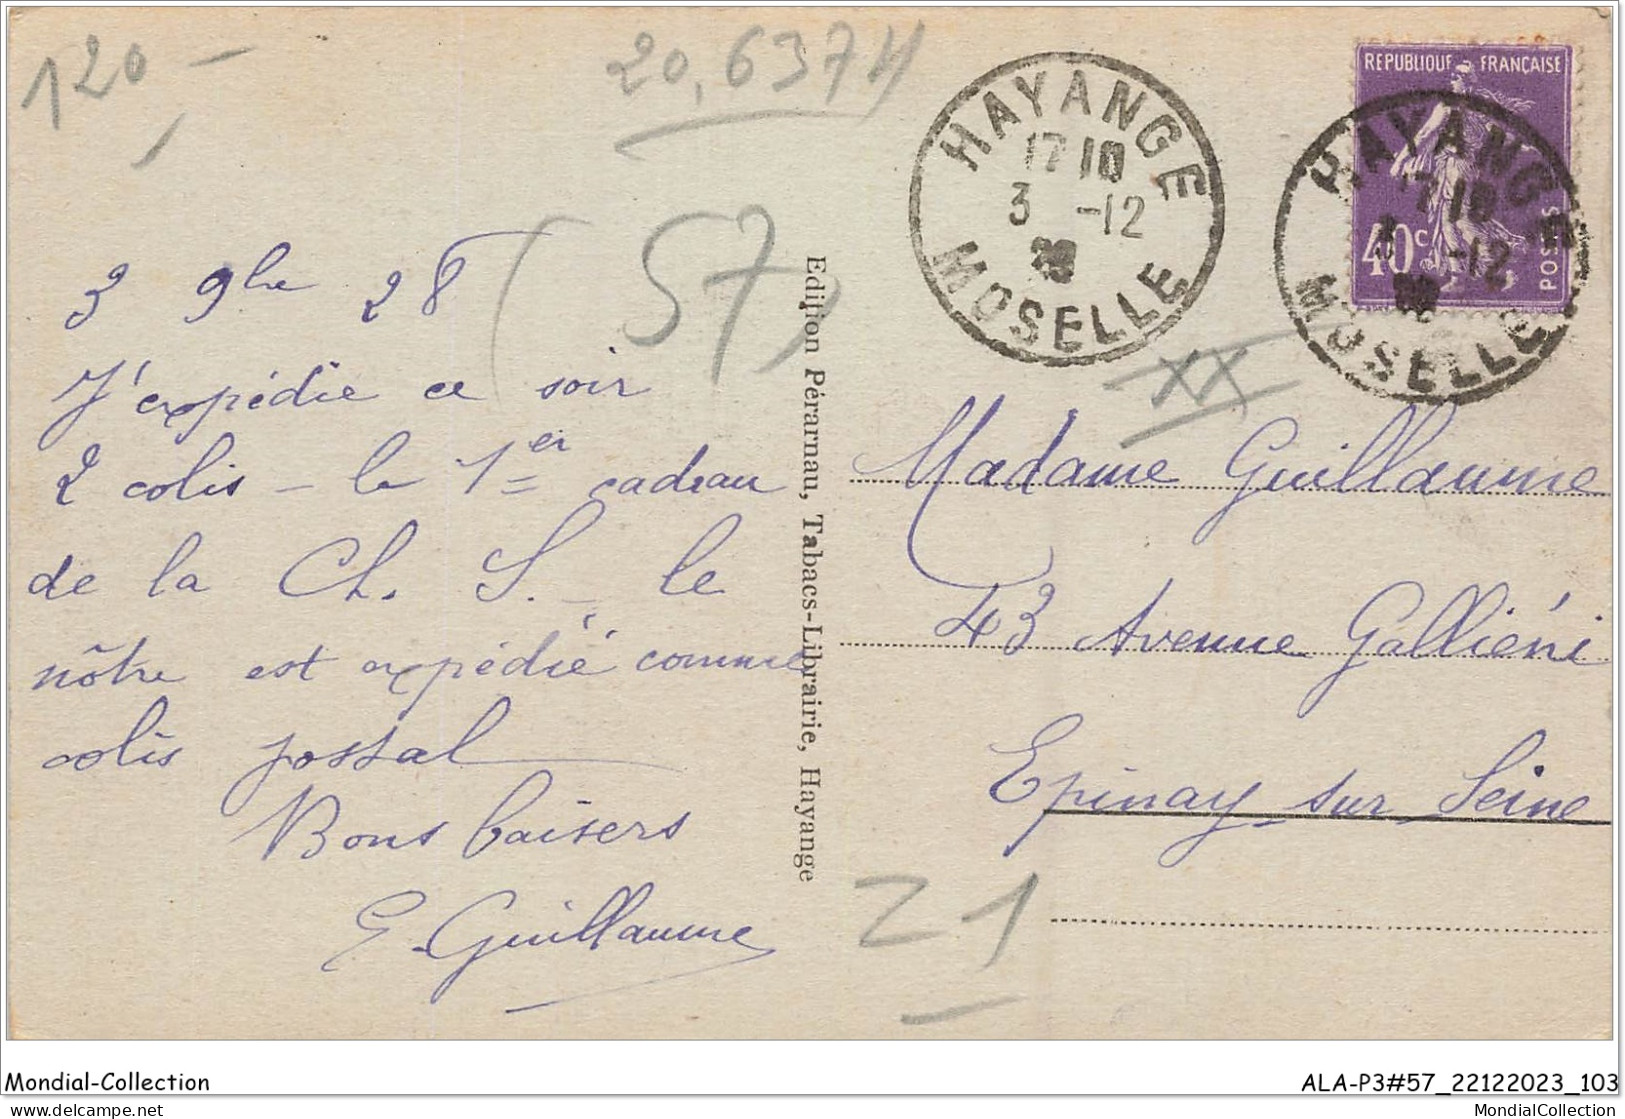 120 -
20,6374
(57)
3 9bre 28
J'expédie ce soir
2 colis - le 1er cadeau
de la Ch. S. - le
nôtre est expédié comme
colis postal
Bons baisers
E. Guillaume
Edition Pérarnau, Tabacs-Librairie, Hayange
HAYANGE
17 10
3 -12
MOSELLE
REPUBLIQUE FRANÇAISE
40c
POSTES
HAYANGE
17 10
3 -12
MOSELLE
XX
Madame Guillaume
43 Avenue Galliéni
Epinay sur Seine
Z1
Mondial-Collection
ALA-P3#57_22122023_103
https://www.delcampe.net
MondialCollection